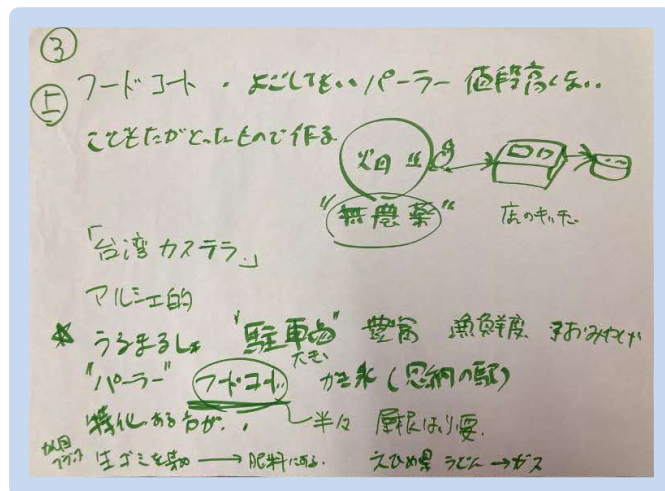 ③
⑤
フードコート ・ よごしてもいいパーラー 値段高くない..
こどもたちがとったもので作る
畑
"無農薬"
店のキッチン
「台湾カステラ」
マルシェ的
☆ うるまるしぇ "駐車場" 豊富 魚鮮度
大きい
"パーラー" フードコート かき氷 (恩納の駅)
特化ある方が.. 半々 屋根はり要.
生ゴミを集め → 肥料にする. えひめ県 うどん → ガス